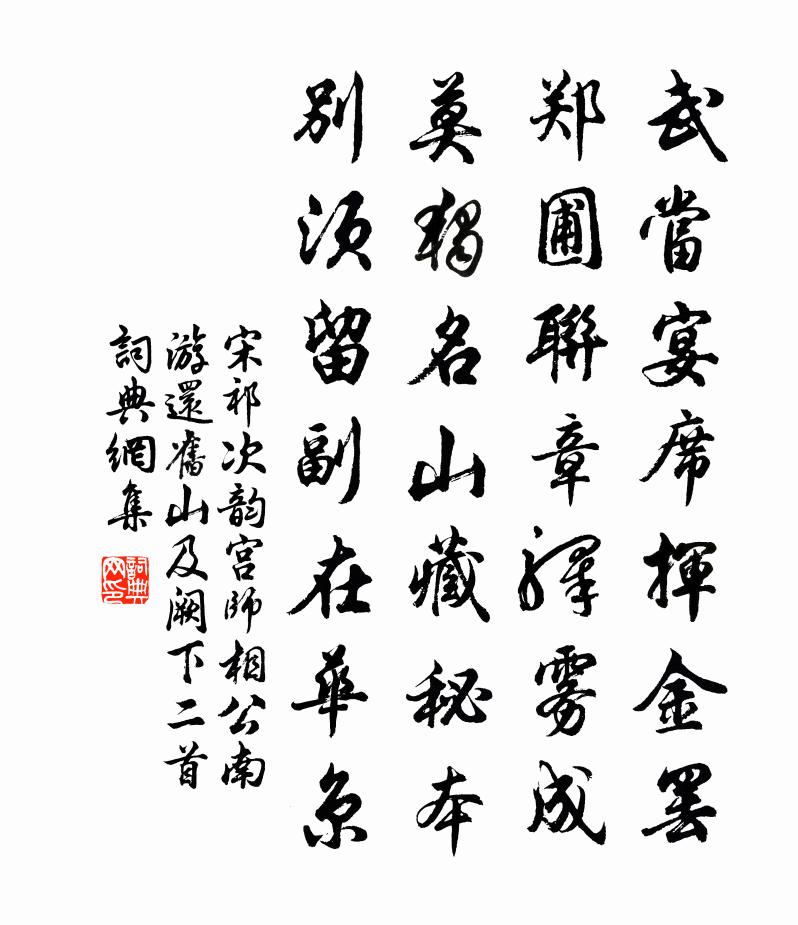 武當宴席揮金罢
郑圃聯章驛雾成
莫獨名山藏秘本
别須留副在華京
宋祁次韵宫師相公南
游還舊山及阙下二首
詞典網集
詞典网印